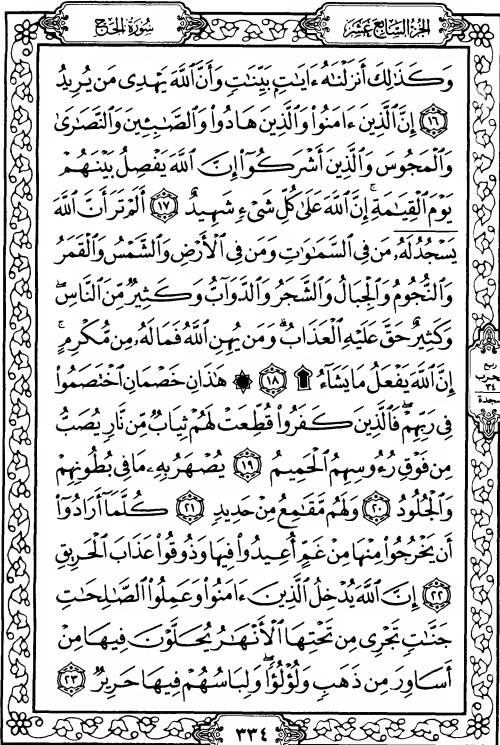 الجزء السابع عشر
سورة الحج
وَكَذَٰلِكَ أَنزَلْنَٰهُ ءَايَٰتٍۭ بَيِّنَٰتٍ وَأَنَّ ٱللَّهَ يَهْدِى مَن يُرِيدُ
١٦ إِنَّ ٱلَّذِينَ ءَامَنُوا۟ وَٱلَّذِينَ هَادُوا۟ وَٱلصَّٰبِـِٔينَ وَٱلنَّصَٰرَىٰ
وَٱلْمَجُوسَ وَٱلَّذِينَ أَشْرَكُوٓا۟ إِنَّ ٱللَّهَ يَفْصِلُ بَيْنَهُمْ
يَوْمَ ٱلْقِيَٰمَةِ ۚ إِنَّ ٱللَّهَ عَلَىٰ كُلِّ شَىْءٍ شَهِيدٌ ١٧ أَلَمْ تَرَ أَنَّ ٱللَّهَ
يَسْجُدُ لَهُۥ مَن فِى ٱلسَّمَٰوَٰتِ وَمَن فِى ٱلْأَرْضِ وَٱلشَّمْسُ وَٱلْقَمَرُ
وَٱلنُّجُومُ وَٱلْجِبَالُ وَٱلشَّجَرُ وَٱلدَّوَآبُّ وَكَثِيرٌ مِّنَ ٱلنَّاسِ ۖ
وَكَثِيرٌ حَقَّ عَلَيْهِ ٱلْعَذَابُ ۗ وَمَن يُهِنِ ٱللَّهُ فَمَا لَهُۥ مِن مُّكْرِمٍ ۚ
إِنَّ ٱللَّهَ يَفْعَلُ مَا يَشَآءُ ۩ ١٨ ۞ هَٰذَانِ خَصْمَانِ ٱخْتَصَمُوا۟
فِى رَبِّهِمْ ۖ فَٱلَّذِينَ كَفَرُوا۟ قُطِّعَتْ لَهُمْ ثِيَابٌ مِّن نَّارٍ يُصَبُّ
مِن فَوْقِ رُءُوسِهِمُ ٱلْحَمِيمُ ١٩ يُصْهَرُ بِهِۦ مَا فِى بُطُونِهِمْ
وَٱلْجُلُودُ ٢٠ وَلَهُم مَّقَٰمِعُ مِنْ حَدِيدٍ ٢١ كُلَّمَآ أَرَادُوٓا۟
أَن يَخْرُجُوا۟ مِنْهَا مِنْ غَمٍّ أُعِيدُوا۟ فِيهَا وَذُوقُوا۟ عَذَابَ ٱلْحَرِيقِ
٢٢ إِنَّ ٱللَّهَ يُدْخِلُ ٱلَّذِينَ ءَامَنُوا۟ وَعَمِلُوا۟ ٱلصَّٰلِحَٰتِ
جَنَّٰتٍ تَجْرِى مِن تَحْتِهَا ٱلْأَنْهَٰرُ يُحَلَّوْنَ فِيهَا مِنْ
أَسَاوِرَ مِن ذَهَبٍ وَلُؤْلُؤًا ۖ وَلِبَاسُهُمْ فِيهَا حَرِيرٌ ٢٣
ربع
حزب
٣٤
سجدة
٣٣٤